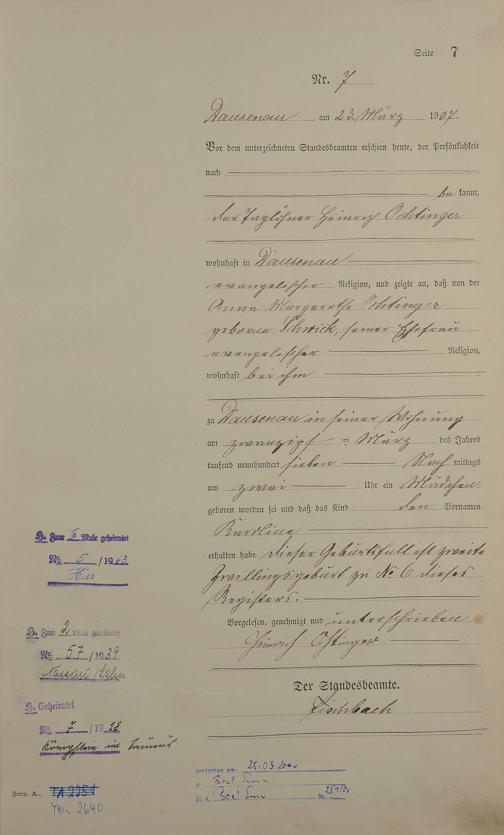 Seite 7
Nr. 7
Dausenau am 23. März 1907.
Vor dem unterzeichneten Standesbeamten erschien heute, der Persönlichkeit
nach
be kannt,
der Taglöhner Heinrich Ochtinger
wohnhaft in Dausenau
evangelischer Religion, und zeigte an, daß von der
Anna Margarethe Ochtinger
geborne Schwick, seiner Ehefrau
evangelischer Religion,
wohnhaft bei ihm
zu Dausenau in seiner Wohnung
am zwanzigst en März des Jahres
tausend neunhundert sieben Nach mittags
um zwei Uhr ein Mädchen
geboren worden sei und daß das Kind den Vornamen
Karoline
erhalten habe. Dieser Geburtsfall ist zweite
Zwillingsgeburt zu No 6 dieses
Registers.
Vorgelesen, genehmigt und unterschrieben
Heinrich Ochtinger
Der Standesbeamte.
Fischbach
H. Zum 3 Male geheiratet
Nr. 5 / 1963
Hier
H. Zum 2. Male geheiratet
Nr. 57 / 1939
Nassau/Lahn
H. Geheiratet
Nr. 7 / 1928
Königstein im Taunus
gestorben am: 25.03.
in Bad Ems
St. A. Bad Ems Nr.
Form. A.